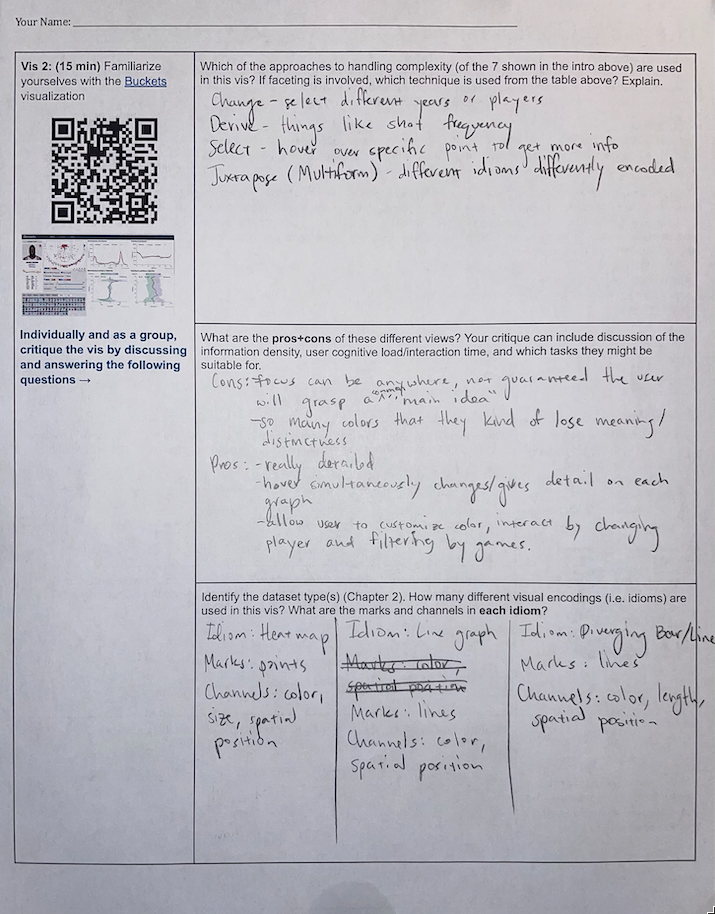 Your Name:
Vis 2: (15 min) Familiarize
yourselves with the Buckets
visualization
Individually and as a group,
critique the vis by discussing
and answering the following
questions →
Which of the approaches to handling complexity (of the 7 shown in the intro above) are used
in this vis? If faceting is involved, which technique is used from the table above? Explain.
Change - select different years or players
Derive - things like shot frequency
Select - hover over specific point to get more info
Juxtapose (Multiform) - different idioms differently encoded
What are the pros+cons of these different views? Your critique can include discussion of the
information density, user cognitive load/interaction time, and which tasks they might be
suitable for.
Cons: focus can be anywhere, not guaranteed the user
will grasp a common "main idea"
-so many colors that they kind of lose meaning/
distinctness
Pros: -really detailed
-hover simultaneously changes/gives detail on each
graph
-allow user to customize color, interact by changing
player and filtering by games.
Identify the dataset type(s) (Chapter 2). How many different visual encodings (i.e. idioms) are
used in this vis? What are the marks and channels in each idiom?
Idiom: Heatmap
Marks: points
Channels: color,
size, spatial
position
Idiom: Line graph
Marks: color,
spatial position
Marks: lines
Channels: color,
spatial position
Idiom: Diverging Bar/Line
Marks: lines
Channels: color, length,
spatial position